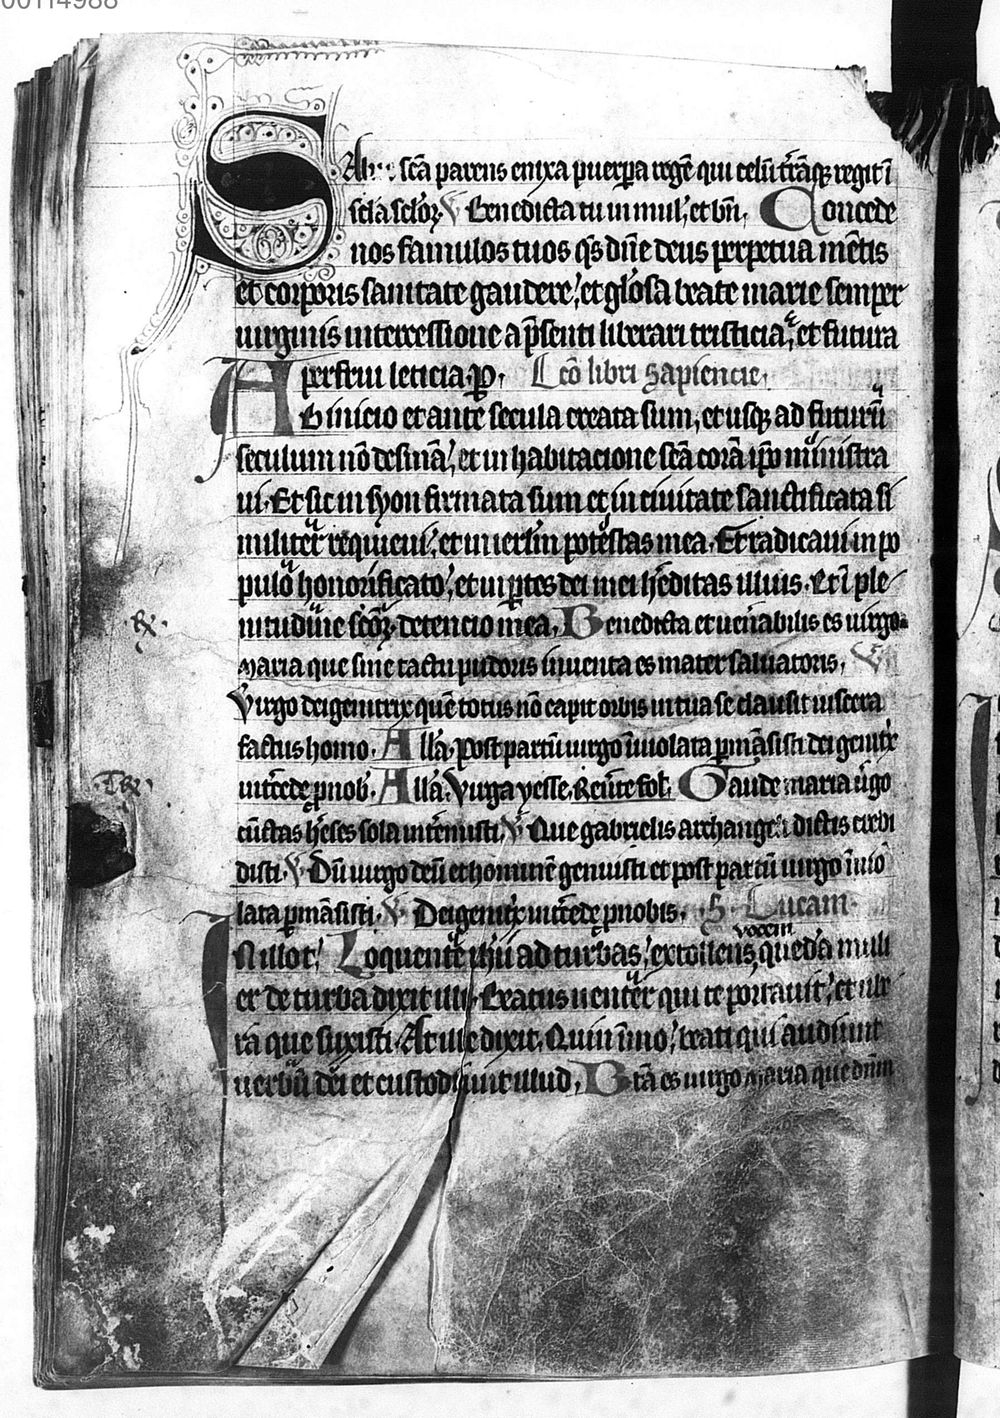 00114988
Salue scā parens enixa puerpa regē qui celū trāq; regit ī
scl̄a scl̄oꝝ ℣ Benedicta tu in mul̄, et bn̄, Concede
nos famulos tuos qs̄ dn̄e deus perpetua mētis
et corporis sanitate gaudere, et gl̄osa beate marie semper
uirginis intercessione a p̄senti liberari tristicia, et futura
perfrui leticia. P̱, Lcō libri sapiencie,
Ab inicio et ante secula creata sum, et usq; ad futurū
seculum nō desinā, et in habitacione scā corā ip̄o ministra
ui. Et sic in syon firmata sum et in ciuitate sanctificata si
militer requieui, et in ierl̄m potestas mea. Et radicaui in po
pulo honorificato, et in ꝑtes dei mei h̄editas illius. Et ī ple
nitudine sc̄oꝝ detencio mea, Benedicta et uen̄abilis es uirgo
maria que sine tactu pudoris inuenta es mater saluatoris, ℣
Virgo dei genitrix quē totus nō capit orbis in tua se clausit uiscera
factus homo. All̄a. Post partū uirgo īuiolata ꝑmāsisti dei genitx
int̄cede ꝓ nob̄. All̄a. Virga yesse. Reūre fol. Gaude maria ūgo
℟.
Tr̄.
cūctas h̄eses sola int̄emisti ℣ Que gabrielis archangeli dictis credi
disti. ℣ Dū uirgo deū et hominē genuisti et post partū uirgo īuio
lata ꝑmāsisti. ℣ Dei genitx int̄cede ꝓ nobis, S. Lucam
vocem
In illot̄, Loquente ih̄u ad turbas, extollens quedā muli
er de turba dixit illi. Beatus uenter qui te portauit, et ube
ra que suxisti. At ille dixit. Quin īmo, beati qui audiunt
uerbū dei et custodiunt illud, Btā es uirgo maria que dn̄m